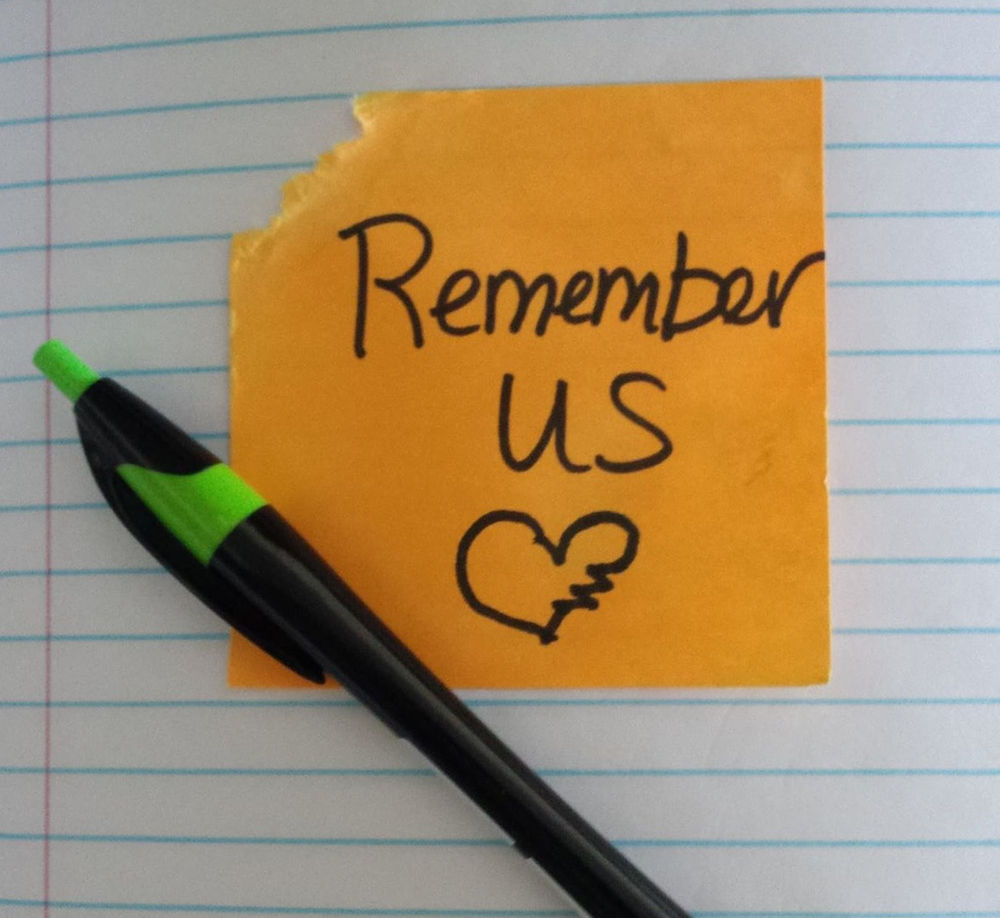 Remember
us